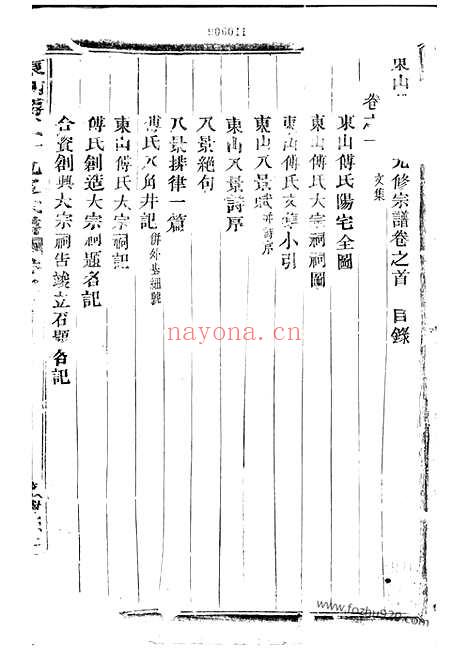 906011
東山 九修宗譜卷之首 目錄
卷之一 文集
東山傅氏陽宅全圖
東山傅氏大宗祠祠圖
東山傅氏文集小引
東山八景賦並詩序
東山八景詩序
八景絕句
八景排律一篇
傅氏八角井記
東山傅氏大宗祠記
傅氏創造大宗祠題名記
合資創興大宗祠告竣立石題名記
nayona.cn
www.fozhu920.com